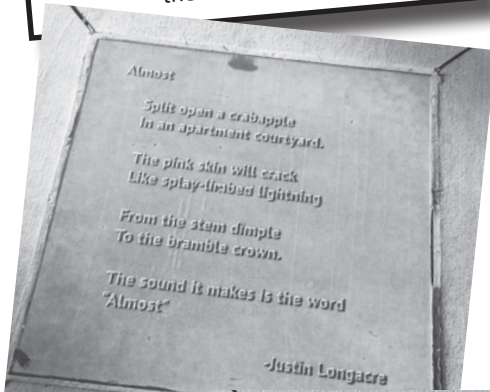 Almost
Split open a crabapple
In an apartment courtyard.
The pink skin will crack
Like splay-limbed lightning
From the stem dimple
To the bramble crown.
The sound it makes is the word
"Almost"
-Justin Longacre